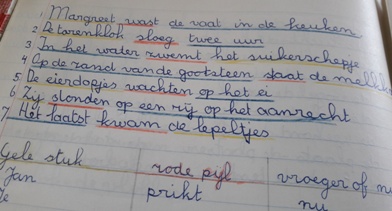 1 Margreet wast de vaat in de keuken
2 De torenklok sloeg twee uur
3 In het water zwemt het suikerschepje
4 Op de rand van de gootsteen staat de melkk
5 De eierdopjes wachten op het ei
6 Zij stonden op een rij op het aanrecht
7 Het laatst kwam de lepeltjes
Gele stuk rode pijl vroeger of nu
Jan prikt nu